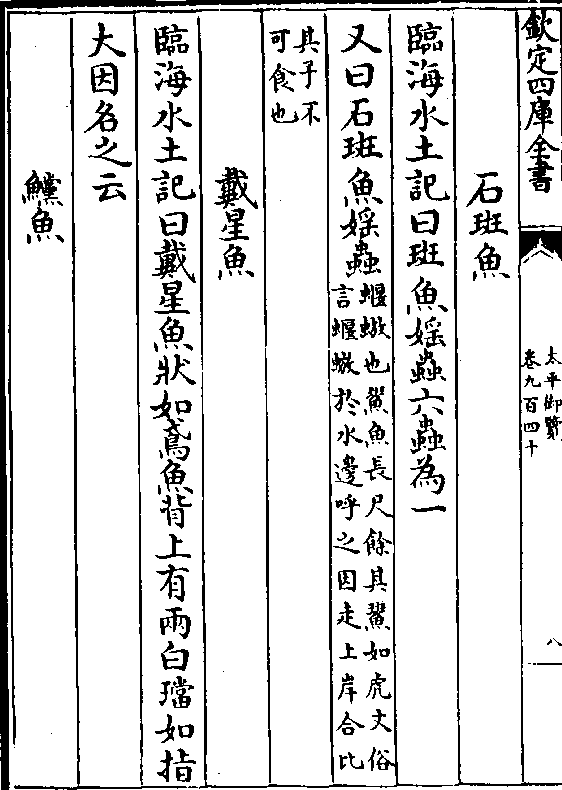 欽定四庫全書
太平御覽
卷九百四十
八
石斑魚
臨海水土記曰斑魚婬蟲六蟲為一
又曰石斑魚婬蟲蝘蜓也鱟魚長尺餘其鱟如虎文俗
言蝘蜓於水邊呼之因走上岸合比
其子不
可食也
戴星魚
臨海水土記曰戴星魚狀如鳶魚背上有兩白璫如指
大因名之云
鱹魚